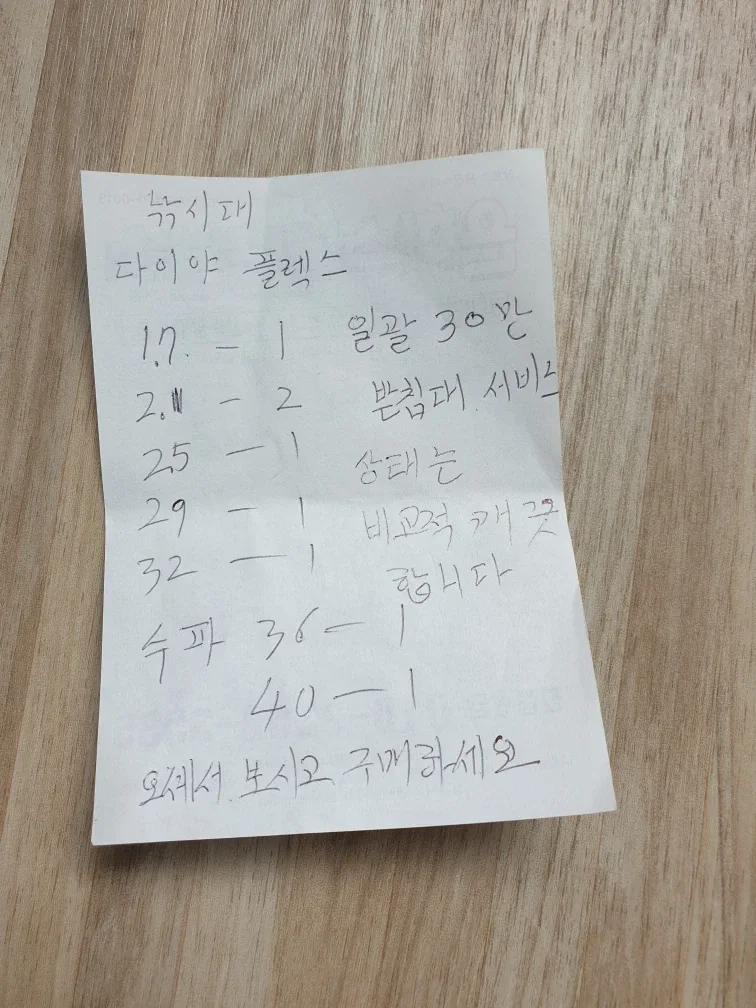 낚시대
다이야 플렉스
1.7. - 1 일괄 30만
2.1 - 2 받침대. 서비스
25 - 1 상태는
29 - 1 비교적 깨끗
32 - 1 합니다
수파 36 - 1
40 - 1
오셔서 보시고 구매하세요